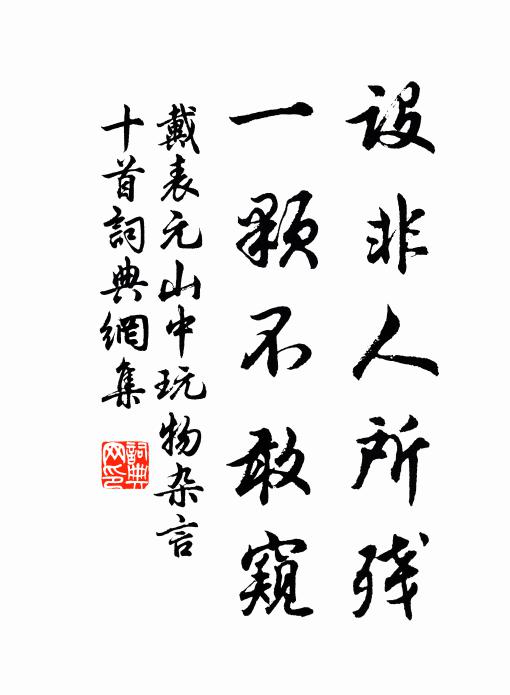 設非人所残
一顆不敢窺
戴表元山中玩物杂言
十首詞典網集
詞典
网印